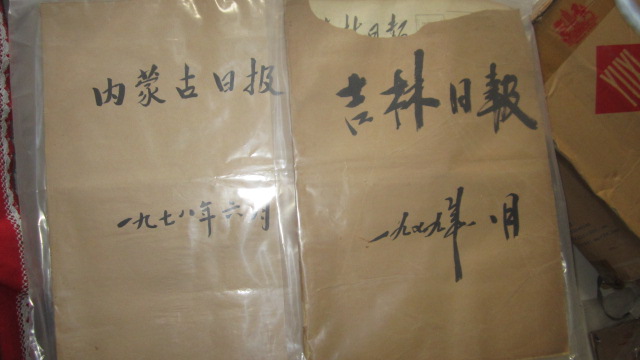 内蒙古日报
一九七八年六月
吉林日報
一九七九年八月
林日报